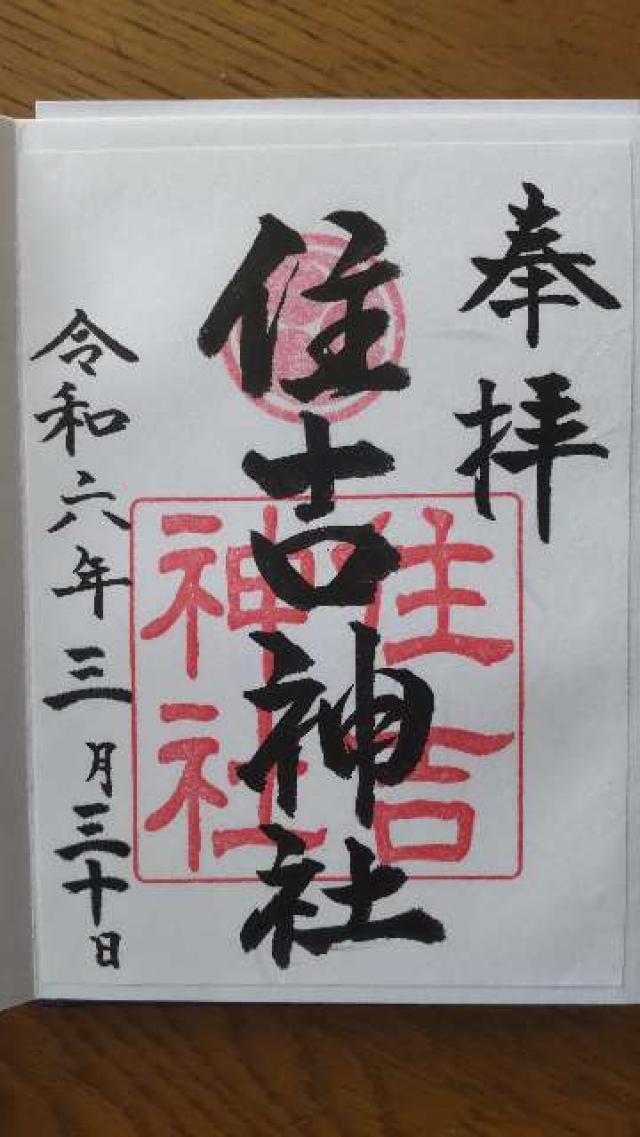 奉拝
住吉神社
住吉
神社
令和六年三月三十日